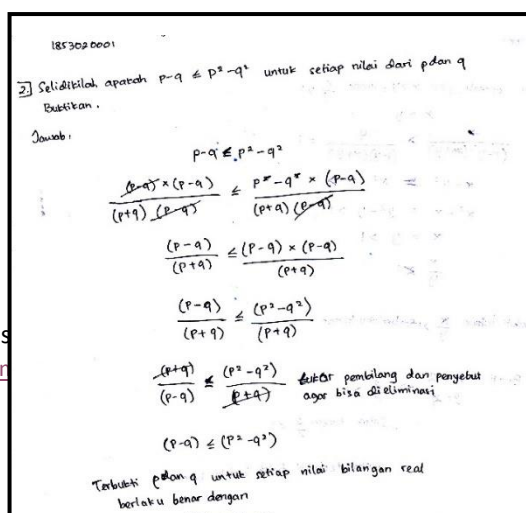 1853020001
2. Selidikilah apakah p-q ≤ p² - q² untuk setiap nilai dari p dan q
Buktikan.
Jawab:
p-q ≤ p² - q²
(p-q) × (p-q) / (p+q) (p-q) ≤ p² - q² × (p-q) / (p+q) (p-q)
(p-q) / (p+q) ≤ (p-q) × (p-q) / (p+q)
(p-q) / (p+q) ≤ (p² - q²) / (p+q)
(p+q) / (p-q) ≤ (p² - q²) / (p+q) tukar pembilang dan penyebut
agar bisa dieliminasi
(p-q) ≤ (p² - q²)
Terbukti p dan q untuk setiap nilai bilangan real
berlaku benar dengan